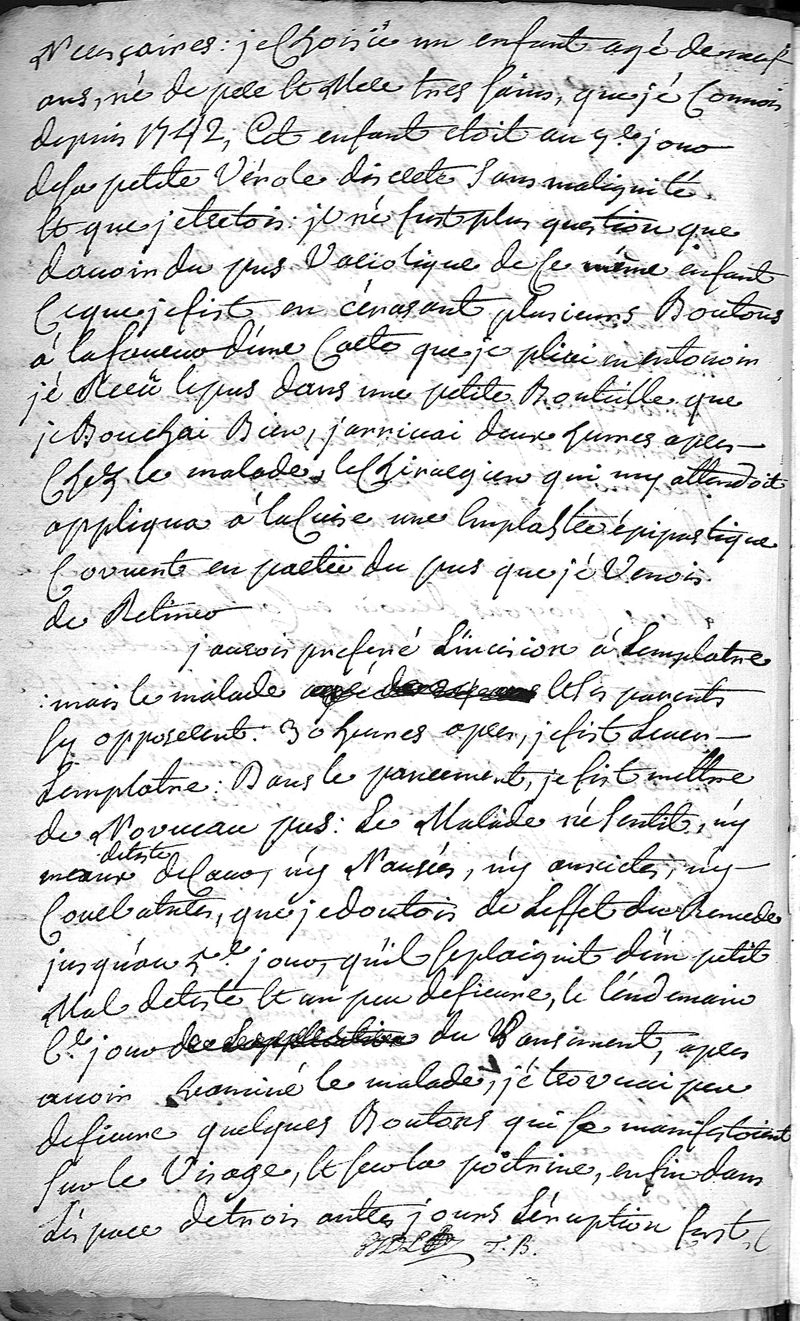 Necessaires : je choisii un enfant agé de neuf
ans, né de pere et Mere tres sains, que jé Connois
depuis 1742, Cet enfant etoit au 9.e jour
de la petite Vérole discrete sans malignité
et que je tretois : il né fust plus question que
d'avoir du pus Variolique de Ce même enfant
Ceque je fist en écrasant plusieurs Boutons
á la faveur d'une Carte que je pliai en entonoir
jé Receü le pus dans une petite Bouteille que
je Bouchai Bien, j'arrivai deux hures apres
Chez le malade, le Chirurgien qui my attendoit
appliqua á la Cuise une Emplastre épipastique
Couverte en partie du pus que jé Venois
de Retirer
j'aurois preferé L'incision á L'emplatre
: mais le malade et ses parents
sy opposerent : 30 hures apres, je fist Lever
L'emplatre : Dans le pancement, je fist mettre
de Nouveau pus : Le Malade né sentit, n'y
meaux de teste de Cœur, n'y Nausées, n'y anxietes, n'y
Courbatures, que je doutois de L'effet du Remede
jusqu'au 5.e jour, qu'il se plaignit d'un petit
Mal de teste et un peu de fievre, le l'endemain
6.e jour du Pansement, apres
avoir Examiné le malade, jé trouvai peu
de fievre quelques Boutons qui se manifestoient
sur le Visage, et sur la poitrine, enfin dans
L'éspace de trois autres jours L'éruption fust
J. B.